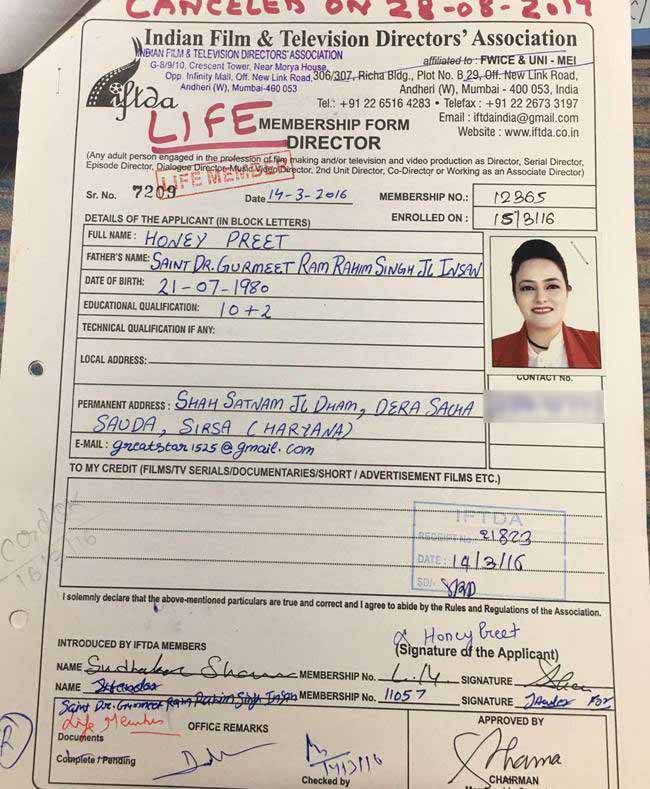 CANCELED ON 28-08-2017
Indian Film & Television Directors' Association
INDIAN FILM & TELEVISION DIRECTORS' ASSOCIATION
affiliated to: FWICE & UNI - MEI
G-8/9/10, Crescent Tower, Near Morya House,
Opp. Infinity Mall, Off. New Link Road,
Andheri (W), Mumbai-400 053
306/307, Richa Bldg., Plot No. B 29, Off. New Link Road,
Andheri (W), Mumbai - 400 053, India
Tel.: +91 22 6516 4283 • Telefax : +91 22 2673 3197
Email : iftdaindia@gmail.com
Website : www.iftda.co.in
iftda
LIFE
MEMBERSHIP FORM
DIRECTOR
(Any adult person engaged in the profession of film making and/or television and video production as Director, Serial Director,
Episode Director, Dialogue Director, Music Video Director, 2nd Unit Director, Co-Director or Working as an Associate Director)
LIFE MEMBER
Sr. No. 7209
Date 14-3-2016
MEMBERSHIP NO.: 12365
ENROLLED ON : 15/3/16
DETAILS OF THE APPLICANT (IN BLOCK LETTERS)
FULL NAME : HONEY PREET
FATHER'S NAME: SAINT DR. GURMEET RAM RAHIM SINGH JI INSAN
DATE OF BIRTH: 21-07-1980
EDUCATIONAL QUALIFICATION: 10+2
TECHNICAL QUALIFICATION IF ANY:
LOCAL ADDRESS:
CONTACT No.
PERMANENT ADDRESS : SHAH SATNAM JI DHAM, DERA SACHA
SAUDA, SIRSA (HARYANA)
E-MAIL : greatstar1525@gmail.com
TO MY CREDIT (FILMS/TV SERIALS/DOCUMENTARIES/SHORT / ADVERTISEMENT FILMS ETC.)
IFTDA
RECEIPT No. 21823
DATE: 14/3/16
SD/-
I solemnly declare that the above-mentioned particulars are true and correct and I agree to abide by the Rules and Regulations of the Association.
Honey Preet
(Signature of the Applicant)
INTRODUCED BY IFTDA MEMBERS
NAME Sudhakar Sharma MEMBERSHIP No. L.M. SIGNATURE
NAME MEMBERSHIP No. 11057 SIGNATURE
Saint Dr. Gurmeet Ram Rahim Singh Insan
Life Member
OFFICE REMARKS
APPROVED BY
Documents
Complete / Pending
14/3/16
Checked by
Sharma
CHAIRMAN
R